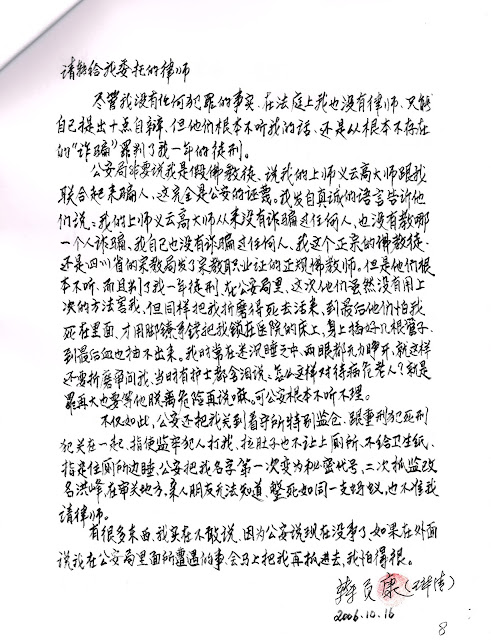 请转给我委托的律师
尽管我没有任何犯罪的事实、在法庭上我也没有律师、只能
自己提出十点自辩、但他们根本不听我的话、还是从根本不存在
的"诈骗"罪判了我一年的徒刑。
公安局本要说我是假佛教徒、说我的上师义云高大师跟我
联合起来骗人、这完全是公安的证责。我发自真诚的语言告诉他
们说：我的上师义云高大师从来没有诈骗过任何人、也没有教哪
一个人诈骗、我自己也没有诈骗过任何人、我这个正宗的佛教徒、
还是四川省的宗教局发了宗教职业证的正规佛教师。但是他们根
本不听、而且判了我一年徒刑、在公安局里、这次他们虽然没有用上
次的方法害我、但同样把我折磨得死去活来、到最后他们怕我
死在里面、才用脚镣手铐把我锁在医院的床上、身上插好几根管子、
到最后血也抽不出来。我时常在迷沉睡之中、两眼都无力睁开、就这样
还要折磨审问我、当时有护士都含泪说：怎么这样对待病危老人？就是
罪再大也要等他脱离危险再说嘛。可公安根本不听不理。
不仅如此、公安还把我关到看守所特别监仓、跟重刑犯死刑
犯关在一起、指使监牢犯人打我、拉肚子也不让上厕所、不给卫生纸、
指定住厕所边睡、公安把我名字第一次变为秘密代号、二次抓监改
名洪峰、在审关地方、亲人朋友无法知道、整死如同一支蚂蚁、也不准我
请律师。
有很多东西、我实在不敢说、因为公安说现在没事了、如果在外面
说我在公安局里面所遭遇的事、会马上把我再抓进去、我怕得很。
2006.10.16
8